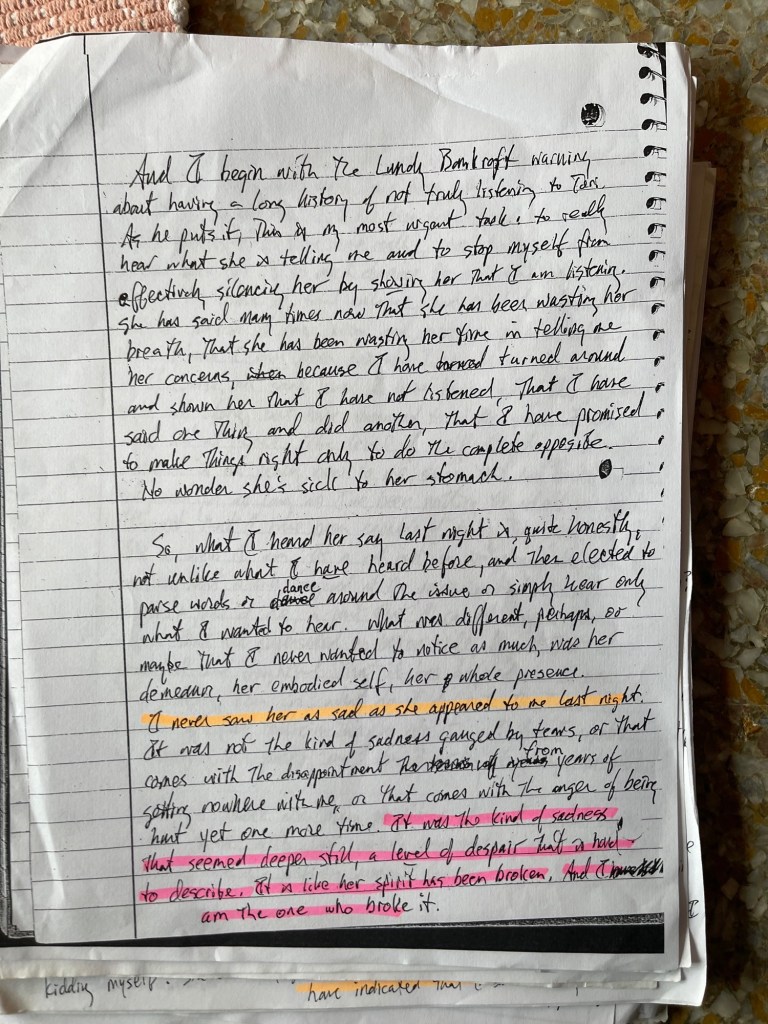 And I begin with the Lundy Bankroft warning
about having a long history of not truly listening to Tori.
As he puts it, This is my most urgent task: to really
hear what she is telling me and to stop myself from
effectively silencing her by showing her that I am listening.
She has said many times now that she has been wasting her
breath, that she has been wasting her time in telling me
her concerns, because I have turned around
and shown her that I have not listened, That I have
said one thing and did another, that I have promised
to make things right only to do the complete opposite.
No wonder she's sick to her stomach.
So, what I heard her say last night is, quite honestly,
not unlike what I have heard before, and then elected to
parse words or dance around the issue or simply hear only
what I wanted to hear. What was different, perhaps, or
maybe that I never wanted to notice as much, was her
demeanor, her embodied self, her whole presence.
I never saw her as sad as she appeared to me last night.
It was not the kind of sadness gauged by tears, or that
comes with the disappointment from years of
getting nowhere with me, or that comes with the anger of being
hurt yet one more time. It was the kind of sadness
that seemed deeper still, a level of despair that is hard
to describe. It is like her spirit has been broken. And I
am the one who broke it.
kidding myself.
have indicated that